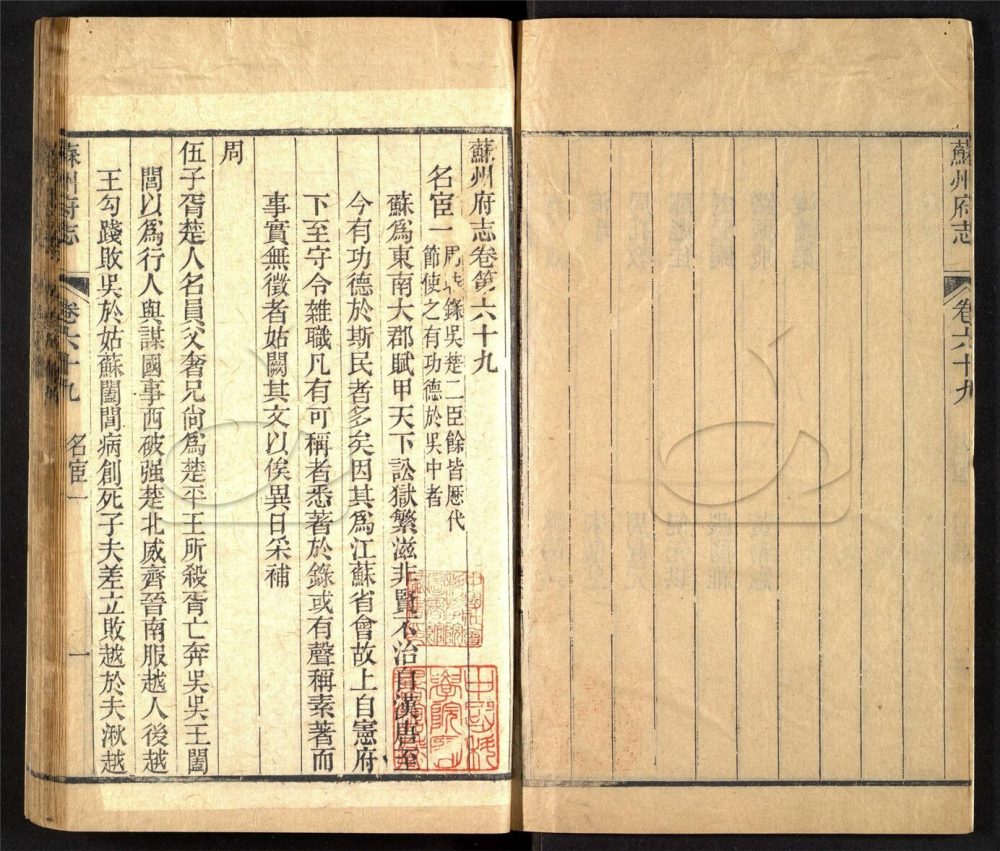 蘇州府志卷第六十九
名宦一
錄吳楚二臣餘皆歷代
節使之有功德於吳中者
蘇爲東南大郡賦甲天下訟獄繁滋非賢不治自漢唐至
今有功德於斯民者多矣因其爲江蘇省會故上自憲府
下至守令雜職凡有可稱者悉著於錄或有聲稱素著而
事實無徵者姑闕其文以俟異日采補
周
伍子胥楚人名員父奢兄尙爲楚平王所殺胥亡奔吳吳王闔
閭以爲行人與謀國事西破强楚北威齊晉南服越人後越
王勾踐敗吳於姑蘇闔閭病創死子夫差立敗越於夫湫越
蘇州府志
卷六十九
名宦一
一
蘇州府志
卷六十九